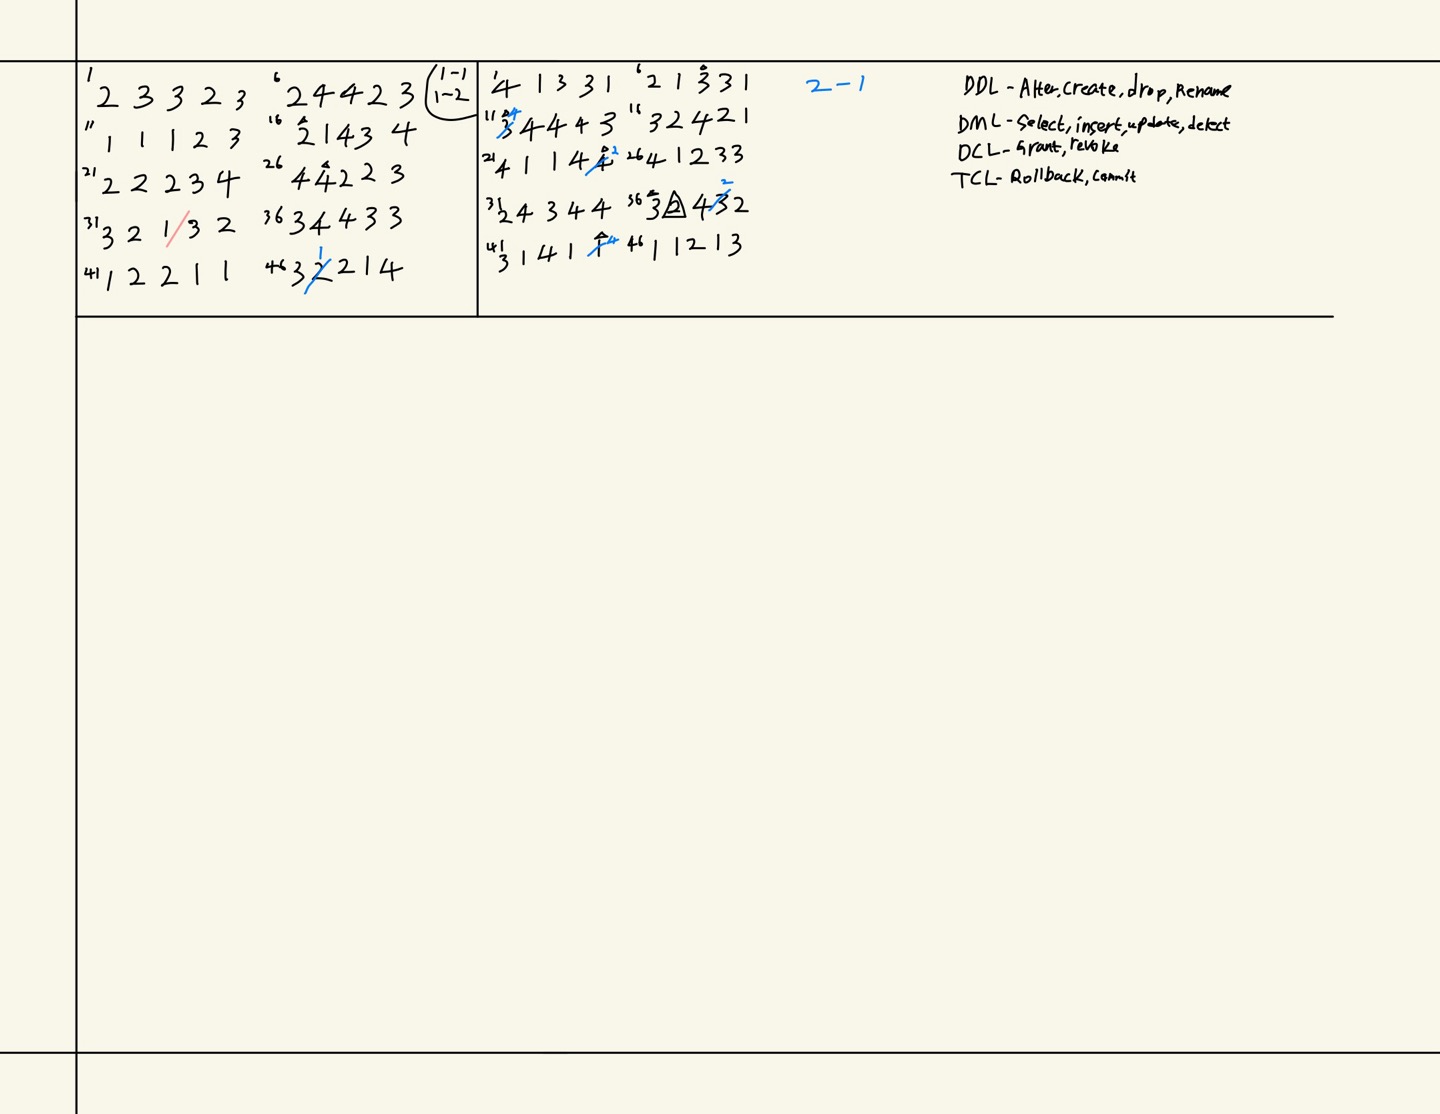 1 2 3 3 2 3 6 2 4 4 2 3 1-1
1-2
11 1 1 1 2 3 16 2 1 4 3 4
21 2 2 2 3 4 26 4 4 2 2 3
31 3 2 1 3 2 36 3 4 4 3 3
41 1 2 2 1 1 46 3 2 1 2 1 4
1 4 1 3 3 1 6 2 1 3 3 1
11 3 4 4 4 4 3 16 3 2 4 2 1
21 4 1 1 4 4 2 26 4 1 2 3 3
31 2 4 3 4 4 36 3 2 4 3 2 2
41 3 1 4 1 1 4 46 1 1 2 1 3
2-1
DDL - Alter, create, drop, Rename
DML - Select, insert, update, delect
DCL - Grant, revoke
TCL - Rollback, commit